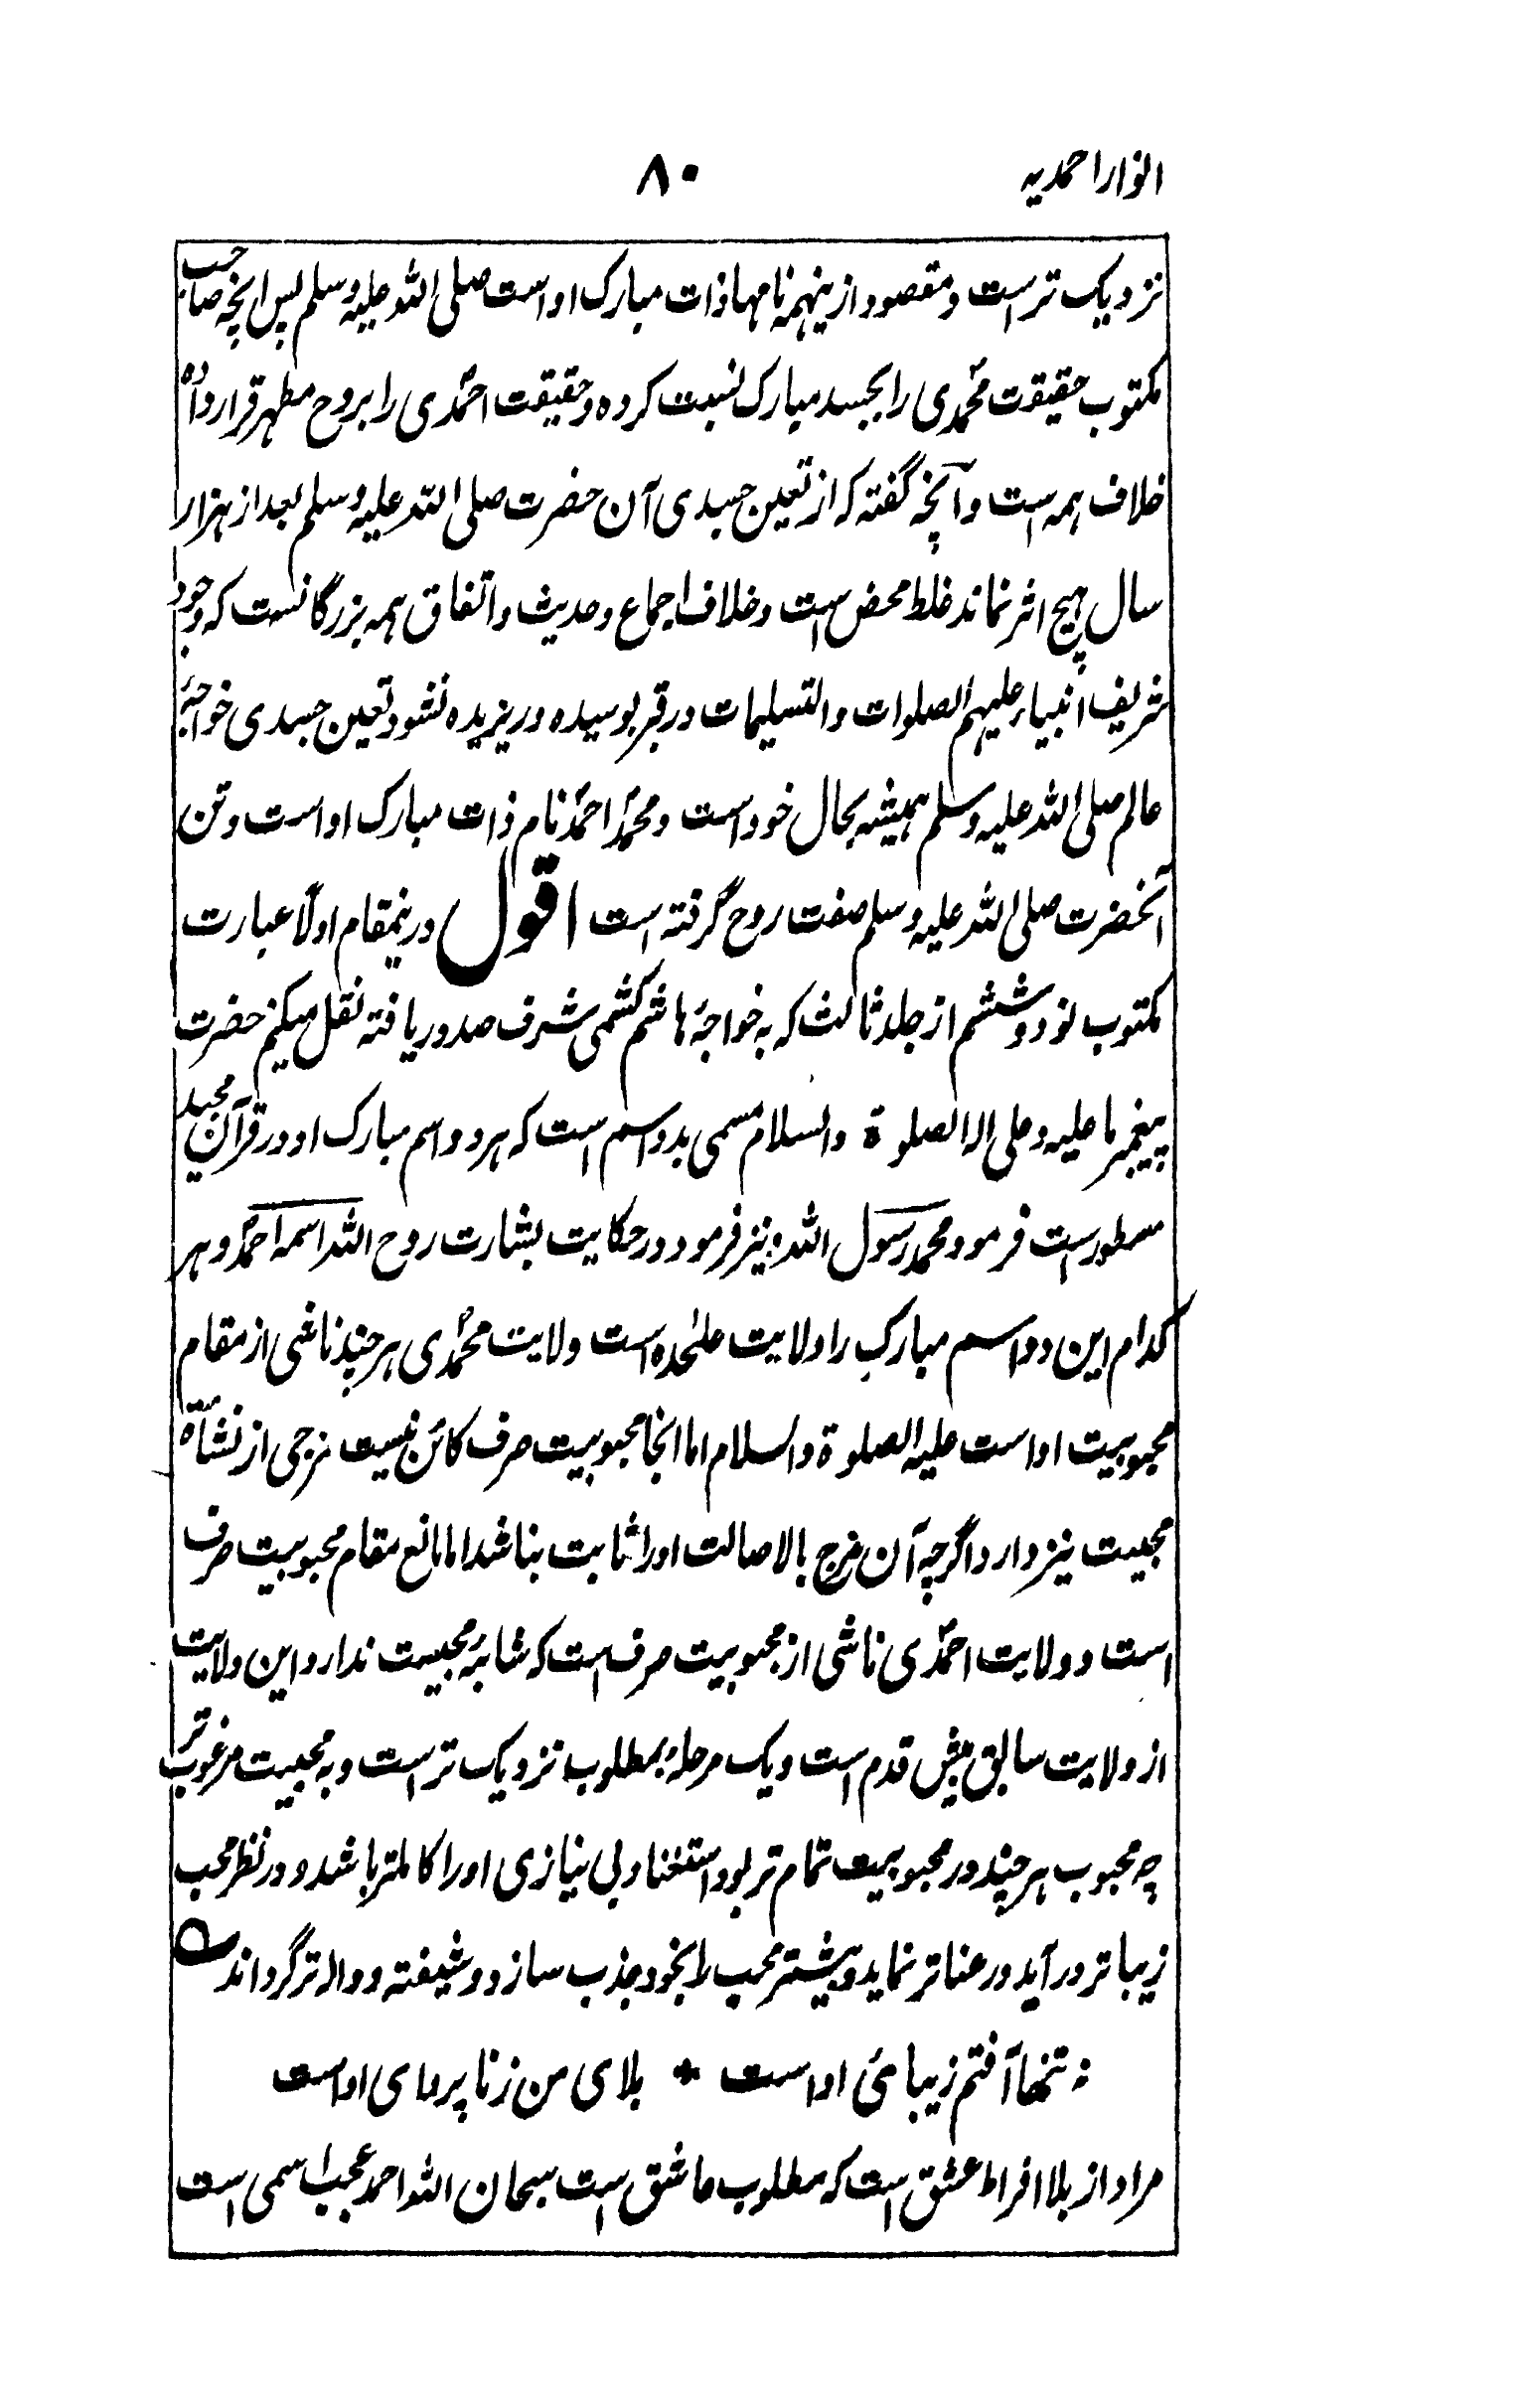 انوار احمدیه
۸۰
نزدیک تر است و مقصود از ینهمه نامها ذات مبارک او است صلی الله علیه وسلم پس انچه صاحب
مکتوب حقیقت محمدی را بجسد مبارک نسبت کرده و حقیقت احمدی را بروح مطهر قرار داده
خلاف همه است و آنچه گفته که از تعین جسدی آن حضرت صلی الله علیه وسلم بعد از هزار
سال هیچ اثر نماند غلط محض است و خلاف اجماع و حدیث و اتفاق همه بزرگانست که وجود
شریف انبیاء علیهم الصلوات والتسلیمات در قبر بوسیده و ریزیده نشود تعین جسدی خواجۀ
عالم صلی الله علیه وسلم همیشه بحال خود است و محمد احمد نام ذات مبارک او است و تن
آنحضرت صلی الله علیه وسلم صفت روح گرفته است اقول درینمقام اولاً عبارت
مکتوب نود و ششم از جلد ثالث که به خواجۀ هاشم کشمی شرف صدور یافته نقل میکنم حضرت
پیغمبر ما علیه وعلی اله الصلوة والسلام مسمی بدو اسم است که هر دو اسم مبارک او در قرآن مجید
مسطور است فرمود محمد رسول الله و نیز فرمود در حکایت بشارت روح الله اسمه احمد و هر
کدام این دو اسم مبارک را ولایت علٰحده است ولایت محمدی هر چند ناشی از مقام
محبوبیت او است علیه الصلوة والسلام اما انجا محبوبیت صرف کائن نیست مزجی از نشأة
محبیت نیز دارد اگرچه آن مزج بالاصالت اورا ثابت بناشد اما مانع مقام محبوبیت صرف
است و ولایت احمدی ناشی از محبوبیت صرف است که شائبۀ محبیت ندارد و این ولایت
از ولایت سابق پیش قدم است و یک مرحلۀ بمطلوب نزدیک تر است و به محبیت مرغوب تر
چه محبوب هر چند در محبوبیت تمام تر بود استغنا و بی نیازی اورا کاملتر باشد و در نظر محب
زیباتر در آید و رعناتر نماید و بیشتر محب را بخود جذب سازد و شیفته و واله تر گرداند ؎
نه تنها آفتم زیبائی او است * بلای من زنا پروای او است
مراد از بلا افراط عشق است که مطلوب عاشق است سبحان الله احمد عجب اسمی است